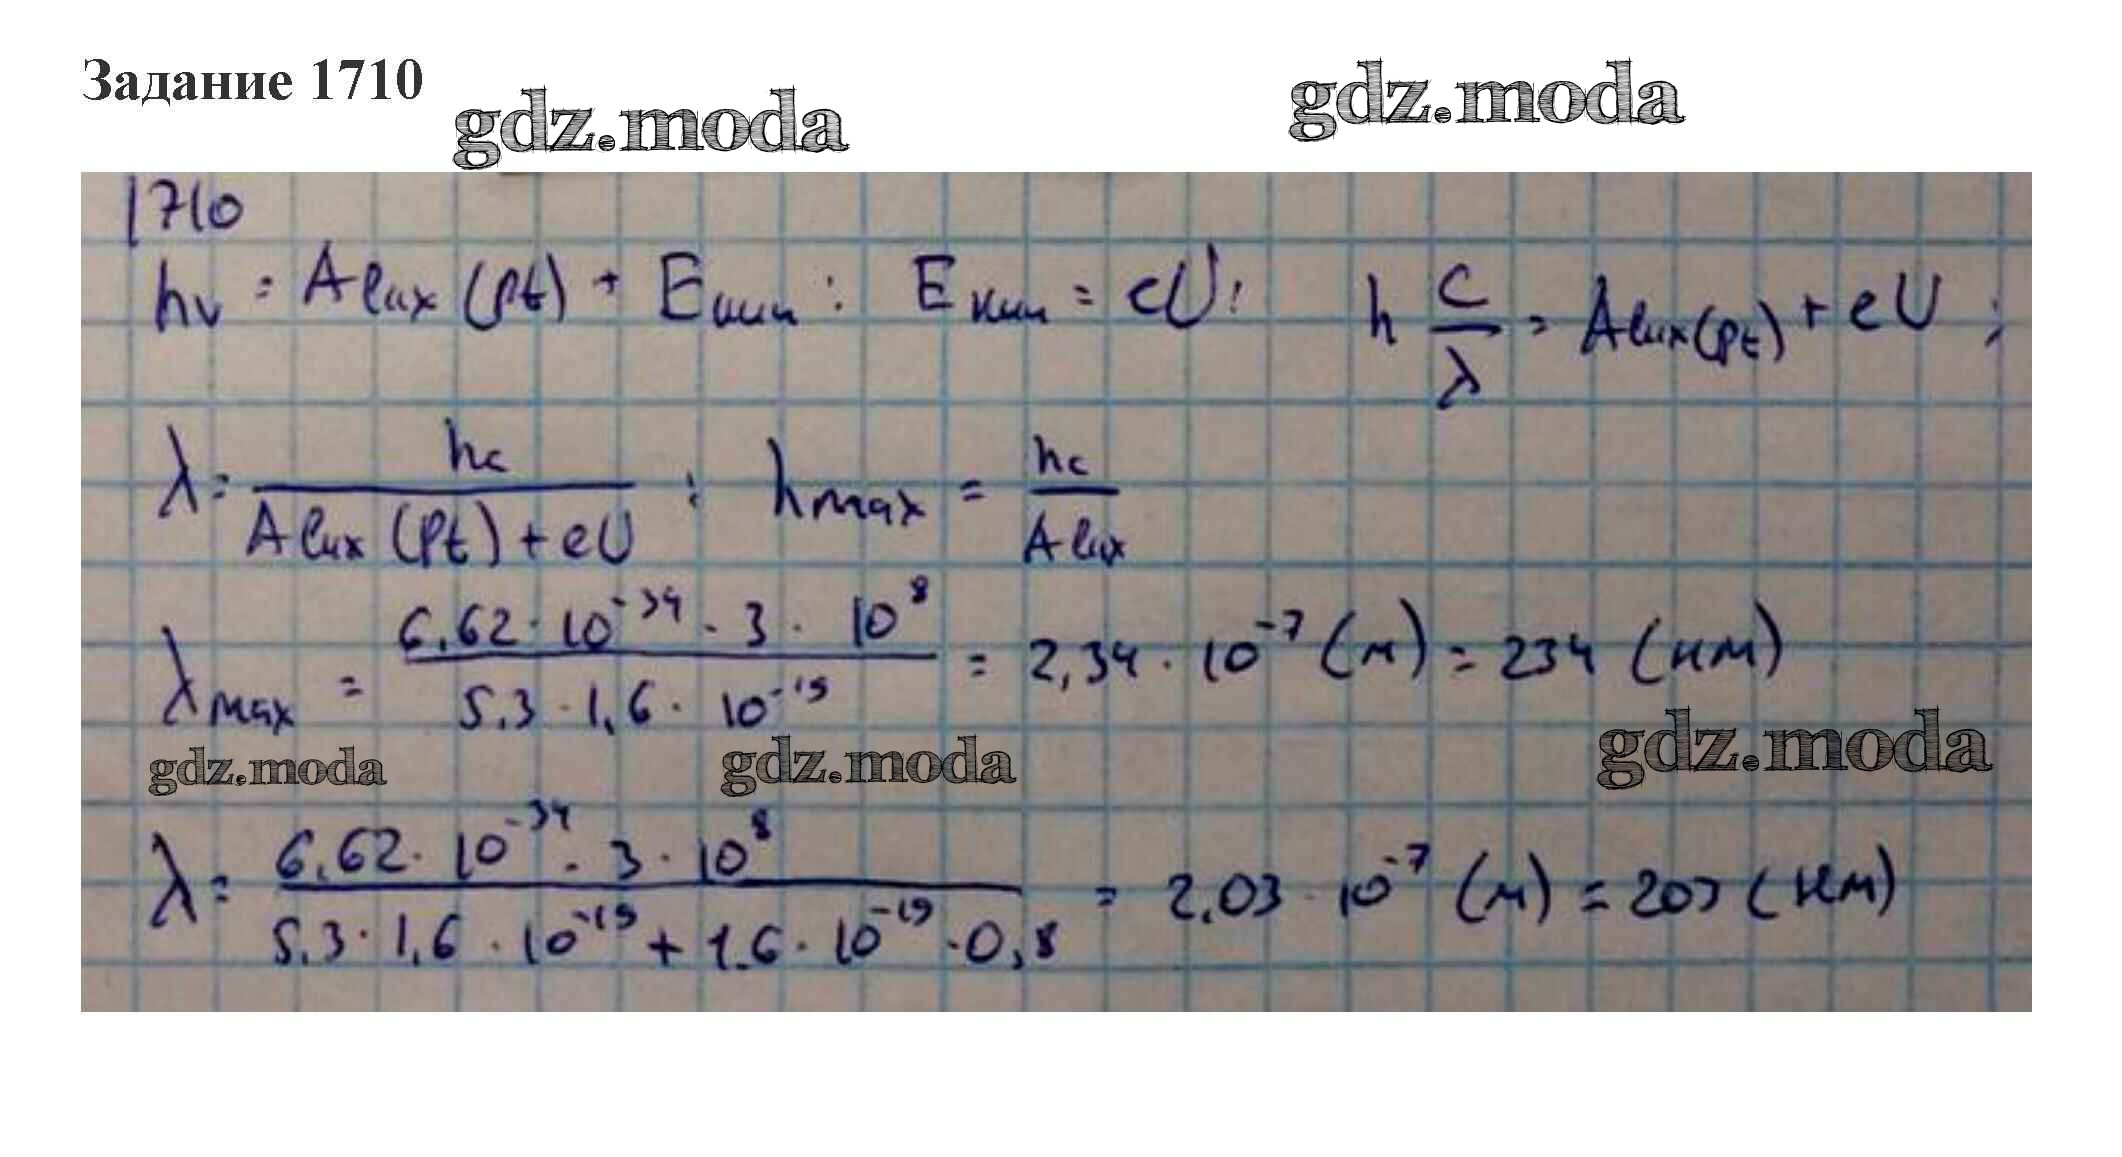 Задание 1710
gdz.moda
gdz.moda
1710
hν = Aвых (Pt) + Eкин ; Eкин = eU; h c/λ = Aвых(Pt) + eU ;
λ = hc / Aвых (Pt) + eU ; hmax = hc / Aвых
λmax = 6,62 · 10^-34 · 3 · 10^8 / 5,3 · 1,6 · 10^-19 = 2,34 · 10^-7 (м) = 234 (нм)
gdz.moda gdz.moda gdz.moda
λ = 6,62 · 10^-34 · 3 · 10^8 / 5,3 · 1,6 · 10^-19 + 1,6 · 10^-19 · 0,8 = 2,03 · 10^-7 (м) = 203 (нм)